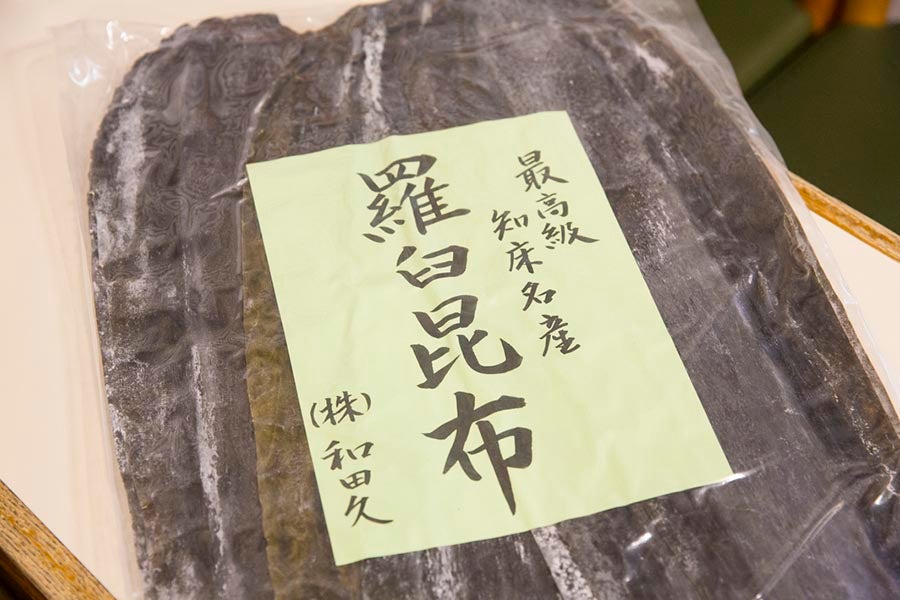 最高級
知床名産
羅臼昆布
(株)和田久